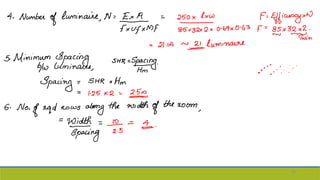 4. Number of luminaire, N = E x A / F x UF x MF = 250 x L x W / 85 x 32 x 2 x 0.69 x 0.63
F = Efficiency x W
F = 85 x 32 x 2
= 21.01 ~ 21 luminaire
5. Minimum Spacing
b/w luminaire, SHR = Spacing / Hm
Spacing = SHR x Hm
= 1.25 x 2 = 2.5m
6. No. of rqd rows along the width of the room,
= Width / Spacing = 10 / 2.5 = 4